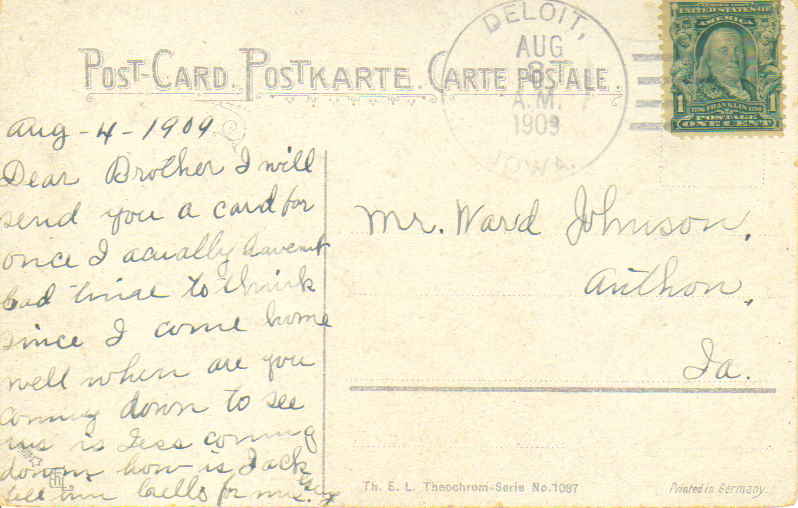 POST-CARD. POSTKARTE. CARTE POSTALE.
DELOIT,
AUG
A.M.
1909
IOWA.
UNITED STATES OF AMERICA
1 FRANKLIN 1
POSTAGE
ONE CENT
Aug - 4 - 1909
Dear Brother I will
send you a card for
once I acually havent
had time to think
since I come home
well when are you
coming down to see
us is Tess coming
down how is Jack
tell him hello for me.
Mr. Ward Johnson,
Anthon,
Ia.
Th. E. L. Theochrom-Serie No. 1087
Printed in Germany.